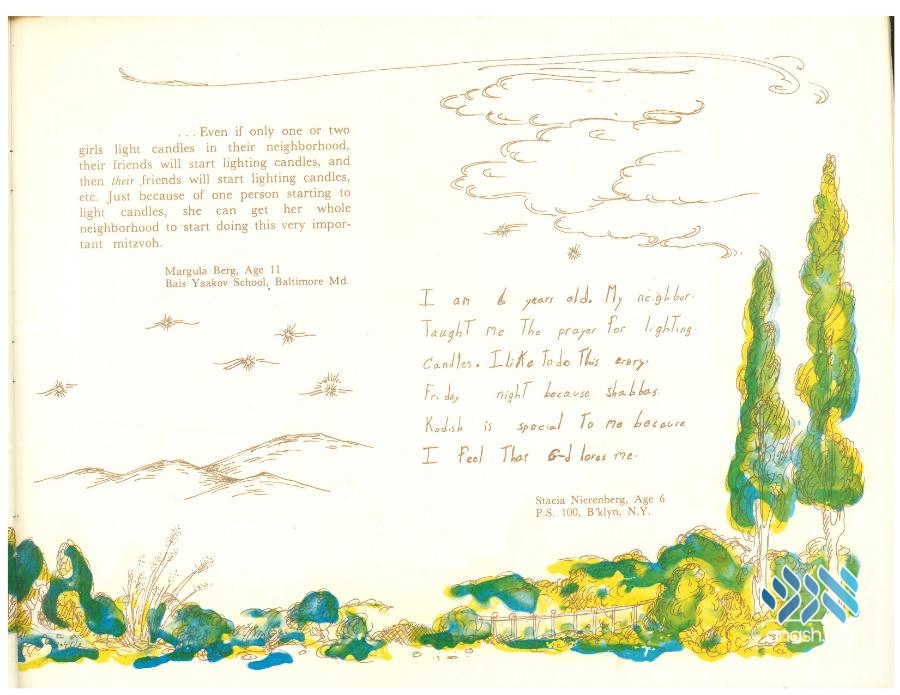 ...Even if only one or two
girls light candles in their neighborhood,
their friends will start lighting candles, and
then their friends will start lighting candles,
etc. Just because of one person starting to
light candles, she can get her whole
neighborhood to start doing this very impor-
tant mitzvoh.
Margula Berg, Age 11
Bais Yaakov School, Baltimore Md.
I am 6 years old. My neighbor
Taught me The prayer for lighting
Candles. I like To do This every
Friday night because shabbas
Kodish is special To me because
I feel That G-d loves me.
Stacia Nierenberg, Age 6
P.S. 100, B'klyn, N.Y.